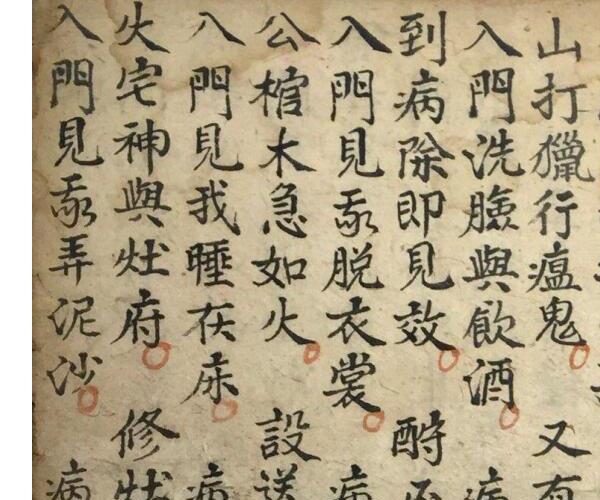 山打獵行瘟鬼 又有
入門洗臉與飲酒 病
到病除即見效 酧
入門見我脫衣裳 病
公棺木急如火 設送
入門見我睡在床 病
火宅神與灶府 修灶
入門見我弄泥沙 病